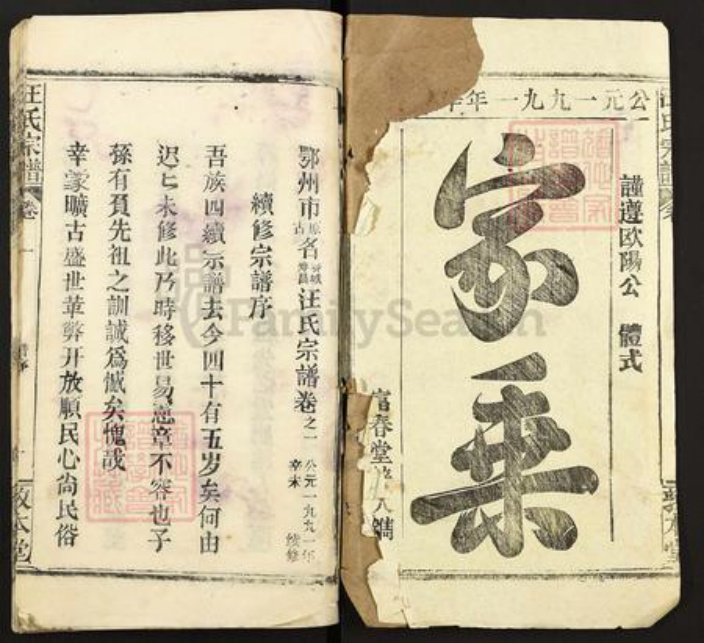 公元一九九一年
謹遵欧陽公 體式
家乘
富春堂 八鐫
敦本堂
鄂州市原名古晋城壽昌汪氏宗譜卷之一 公元一九九一年辛未續修
續修宗譜序
吾族四續宗譜去今四十有五岁矣何由
迟匕未修此乃時移世易憲章不容也子
孫有負先祖之訓誡爲憾矣愧哉
幸蒙曠古盛世革弊开放順民心尚民俗
汪氏宗譜 卷一 譜序
敦本堂
FamilySearch